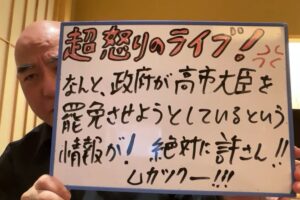 超怒りのライブ!
なんと、政府が高市大臣を
罷免させようとしているという
情報が! 絶対に許さん!!
ムカツクー!!!